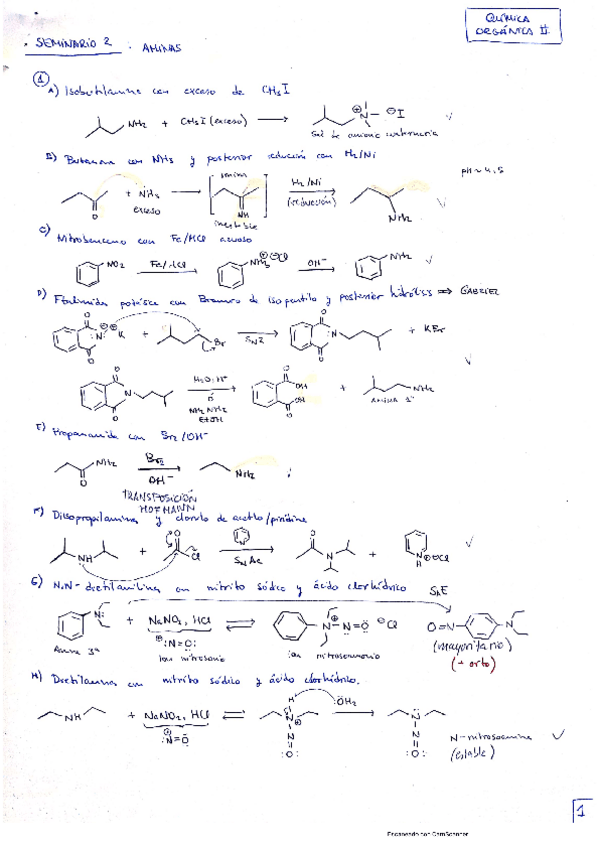 QUÍMICA
ORGÁNICA II
SEMINARIO 2 : AMINAS
1
A) Isobutilamina con exceso de CH3I
NH2 + CH3I (exceso) N ⊕ ⊖I
Sal de amonio cuaternaria
B) Butanona con NH3 y posterior reducción con H2/Ni
pH ~ 4,5
O + NH3 exceso imina NH inestable H2/Ni (reducción) NH2
C) Nitrobenceno con Fe/HCl acuoso
NO2 Fe/HCl NH3 ⊕ ⊖Cl OH⁻ NH2
D) Ftalimida potásica con Bromuro de isopentilo y posterior hidrólisis ⇒ GABRIEL
O N ⊖ ⊕K O + Br SN2 O N O + KBr
O N O H2O, H⁺ ó NH2NH2 EtOH O OH OH O + NH2
amina 1ª
E) Propanamida con Br2/OH⁻
NH2 O Br2 OH⁻ NH2
TRANSPOSICIÓN
HOFMANN
F) Diisopropilamina y cloruro de acetilo/piridina
NH + O Cl N SNAc O N + N H ⊕ ⊖Cl
G) N,N-dietilanilina con nitrito sódico y ácido clorhídrico SEE
N: + NaNO2, HCl N ⊕ N=O ⊖Cl O=N N
Amina 3ª
⊕:N=O:
ion nitrosonio
ion nitrosamonio
(mayoritario)
(+ orto)
H) Dietilamina con nitrito sódico y ácido clorhídrico.
NH + NaNO2, HCl H N ⊕ N :O: :OH2 N N :O:
⊕:N=O
N-nitrosoamina
(estable)
1
Escaneado con CamScanner